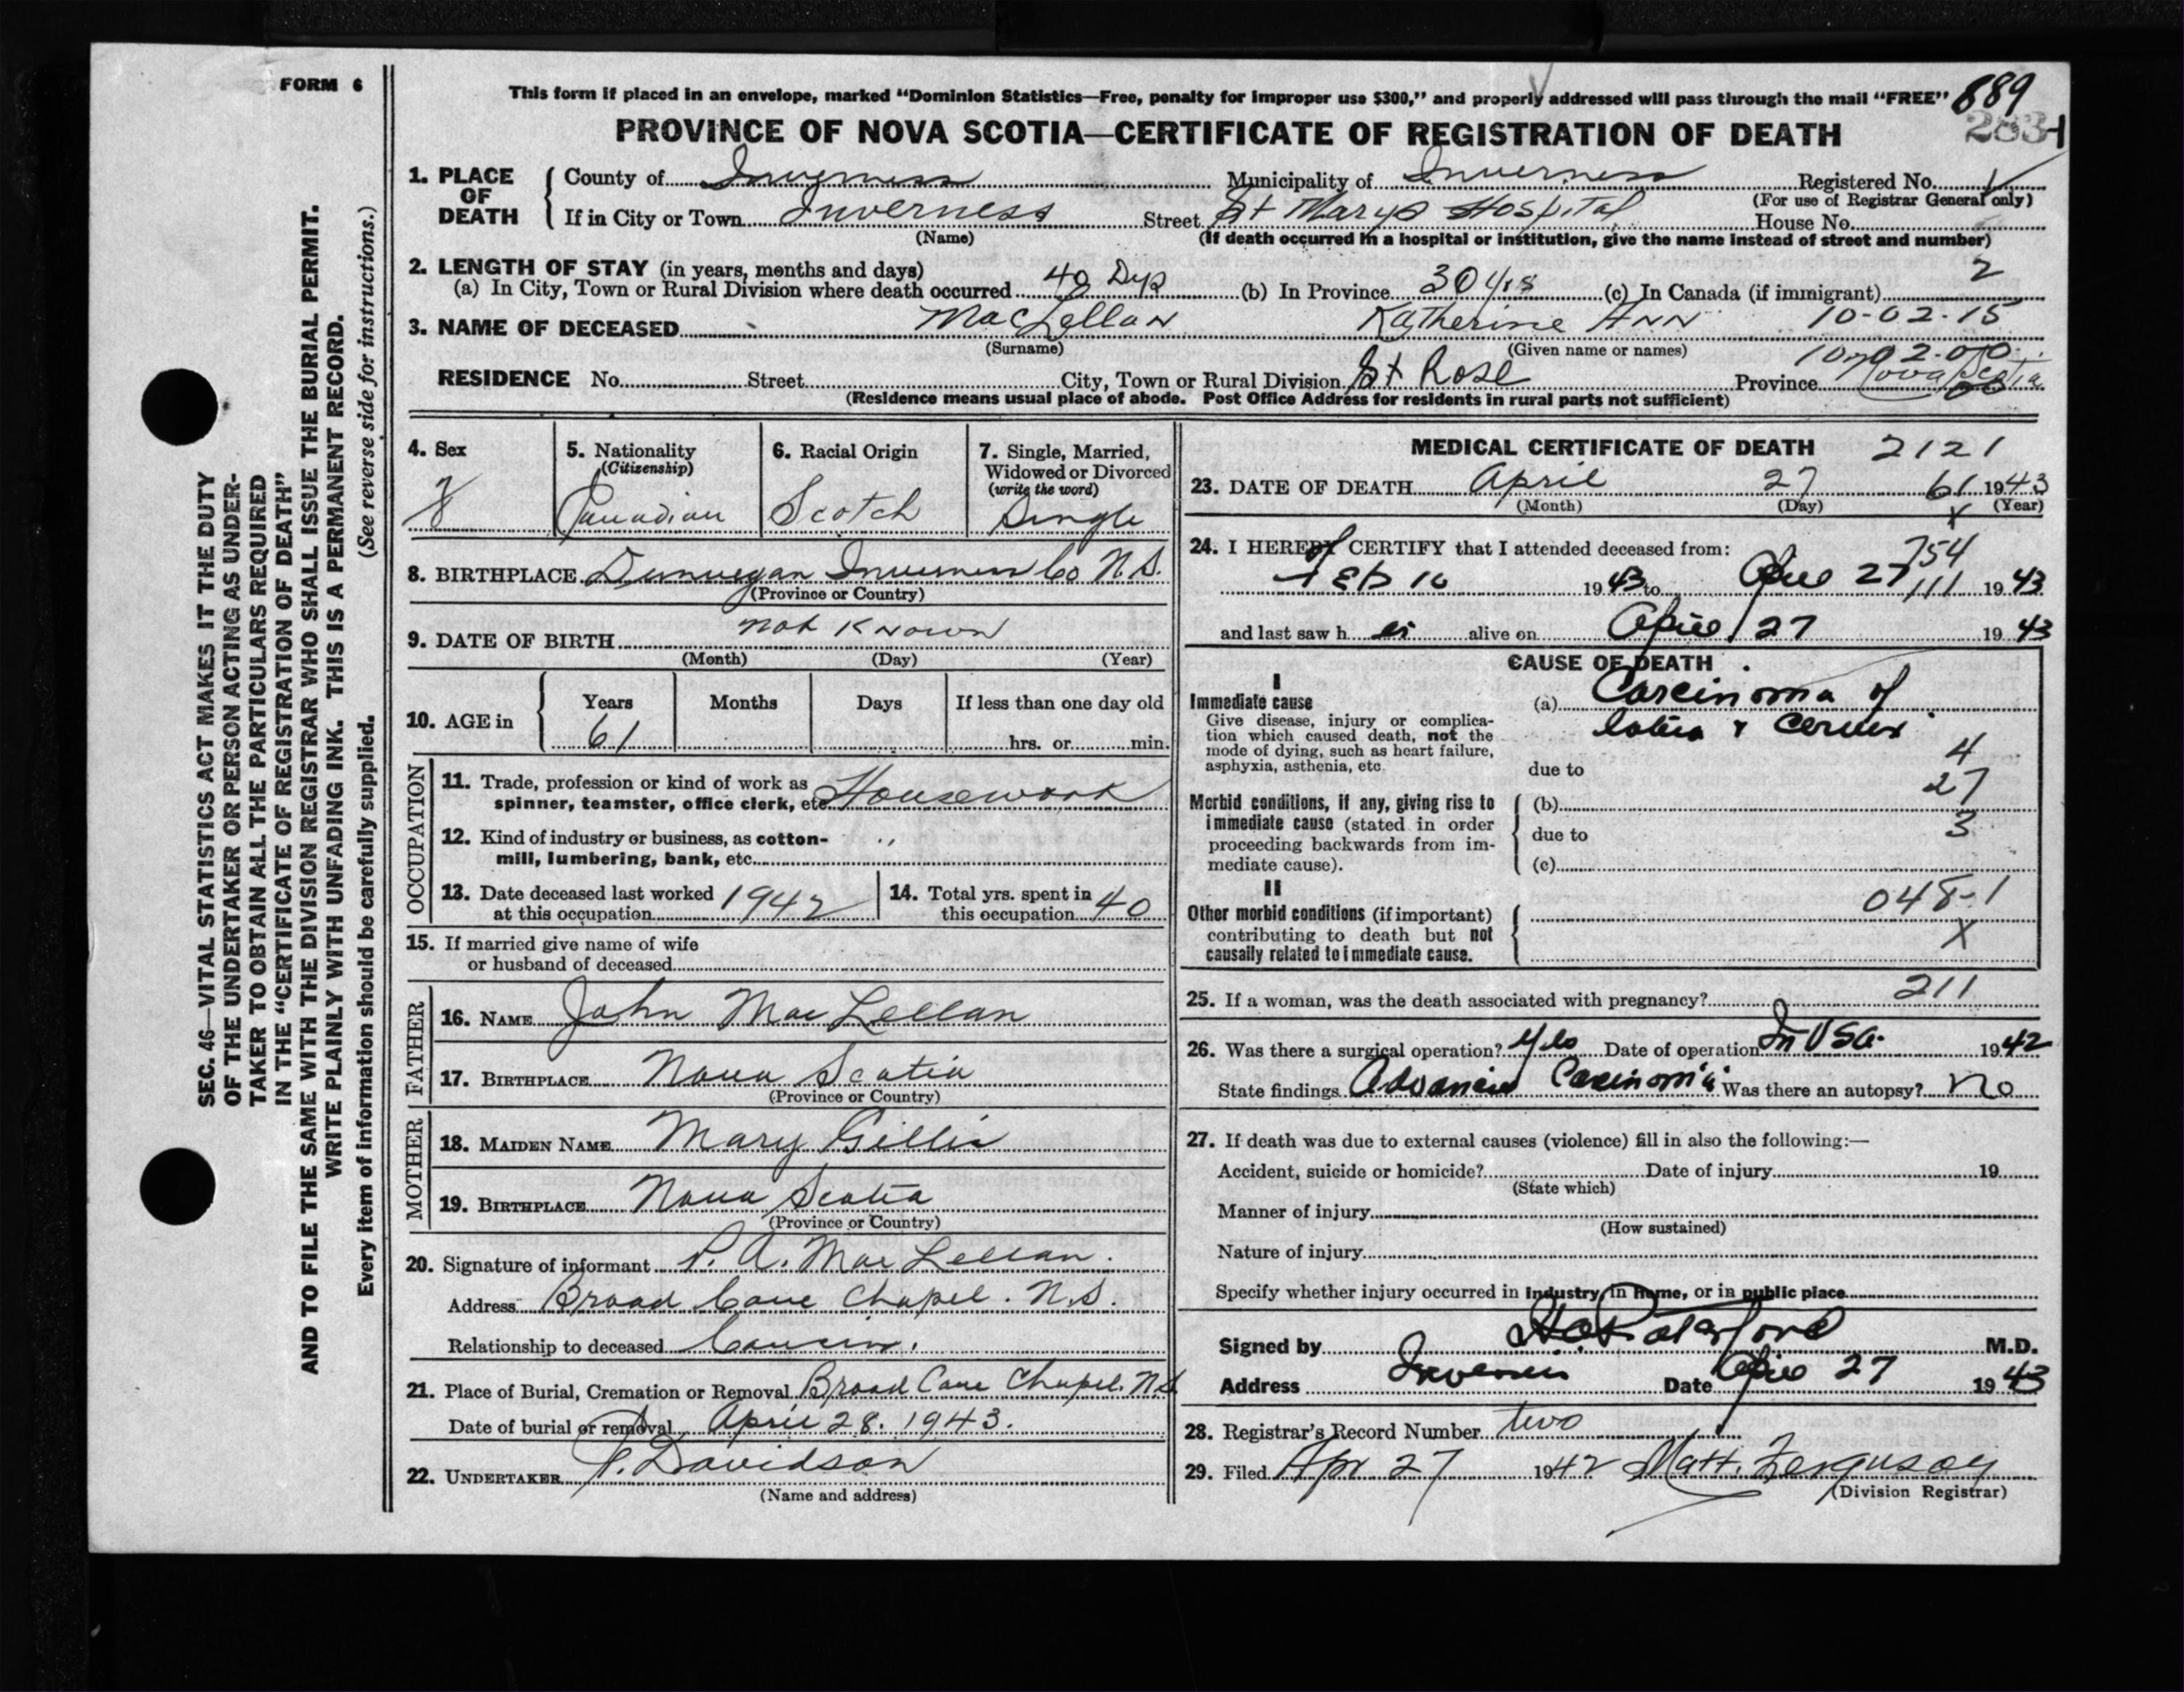 FORM 6
SEC. 46—VITAL STATISTICS ACT MAKES IT THE DUTY
OF THE UNDERTAKER OR PERSON ACTING AS UNDER-
TAKER TO OBTAIN ALL THE PARTICULARS REQUIRED
IN THE "CERTIFICATE OF REGISTRATION OF DEATH"
AND TO FILE THE SAME WITH THE DIVISION REGISTRAR WHO SHALL ISSUE THE BURIAL PERMIT.
WRITE PLAINLY WITH UNFADING INK. THIS IS A PERMANENT RECORD.
Every item of information should be carefully supplied. (See reverse side for instructions.)
This form if placed in an envelope, marked "Dominion Statistics—Free, penalty for improper use $300," and properly addressed will pass through the mail "FREE" 889
PROVINCE OF NOVA SCOTIA—CERTIFICATE OF REGISTRATION OF DEATH
1. PLACE OF DEATH County of Inverness Municipality of Inverness Registered No.
(For use of Registrar General only)
If in City or Town Inverness Street St Marys Hospital House No.
(Name) (If death occurred in a hospital or institution, give the name instead of street and number)
2. LENGTH OF STAY (in years, months and days) 2
(a) In City, Town or Rural Division where death occurred 40 Dys (b) In Province 30 yrs (c) In Canada (if immigrant)
3. NAME OF DECEASED MacLellan Katherine Ann 10-02-15
(Surname) (Given name or names)
RESIDENCE No. Street City, Town or Rural Division St Rose Province Nova Scotia
(Residence means usual place of abode. Post Office Address for residents in rural parts not sufficient)
4. Sex 5. Nationality (Citizenship) 6. Racial Origin 7. Single, Married, Widowed or Divorced (write the word)
F Canadian Scotch Single
8. BIRTHPLACE Dunvegan Inverness Co N.S.
(Province or Country)
9. DATE OF BIRTH not known
(Month) (Day) (Year)
10. AGE in Years Months Days If less than one day old
61 hrs. or min.
OCCUPATION
11. Trade, profession or kind of work as
spinner, teamster, office clerk, etc. Housework
12. Kind of industry or business, as cotton-
mill, lumbering, bank, etc. "
13. Date deceased last worked at this occupation 1942 14. Total yrs. spent in this occupation 40
15. If married give name of wife
or husband of deceased
FATHER
16. NAME John MacLellan
17. BIRTHPLACE Nova Scotia
(Province or Country)
MOTHER
18. MAIDEN NAME Mary Gillis
19. BIRTHPLACE Nova Scotia
(Province or Country)
20. Signature of informant P. A. MacLellan.
Address Broad Cove Chapel. N.S.
Relationship to deceased Cousin.
21. Place of Burial, Cremation or Removal Broad Cove Chapel. N.S
Date of burial or removal April 28. 1943.
22. UNDERTAKER Davidson
(Name and address)
MEDICAL CERTIFICATE OF DEATH 2121
23. DATE OF DEATH April 27 61 1943
(Month) (Day) (Year)
X
24. I HEREBY CERTIFY that I attended deceased from: 754
Feb 16 1943 to April 27 111 1943
and last saw h er alive on April 27 1943
CAUSE OF DEATH
I
Immediate cause
Give disease, injury or complica-
tion which caused death, not the
mode of dying, such as heart failure,
asphyxia, asthenia, etc.
(a) Carcinoma of
& Cervix
4
due to
27
Morbid conditions, if any, giving rise to
immediate cause (stated in order
proceeding backwards from im-
mediate cause).
(b)
due to 3
(c)
II
Other morbid conditions (if important)
contributing to death but not
causally related to immediate cause.
048-1
X
25. If a woman, was the death associated with pregnancy? 211
26. Was there a surgical operation? Yes Date of operation In USA. 1942
State findings Carcinoma Was there an autopsy? No
27. If death was due to external causes (violence) fill in also the following:—
Accident, suicide or homicide? Date of injury 19
(State which)
Manner of injury
(How sustained)
Nature of injury
Specify whether injury occurred in industry, in home, or in public place
Signed by M.D.
Address Inverness Date April 27 1943
28. Registrar's Record Number two
29. Filed Apr 27 1942 Matt. Ferguson
(Division Registrar)